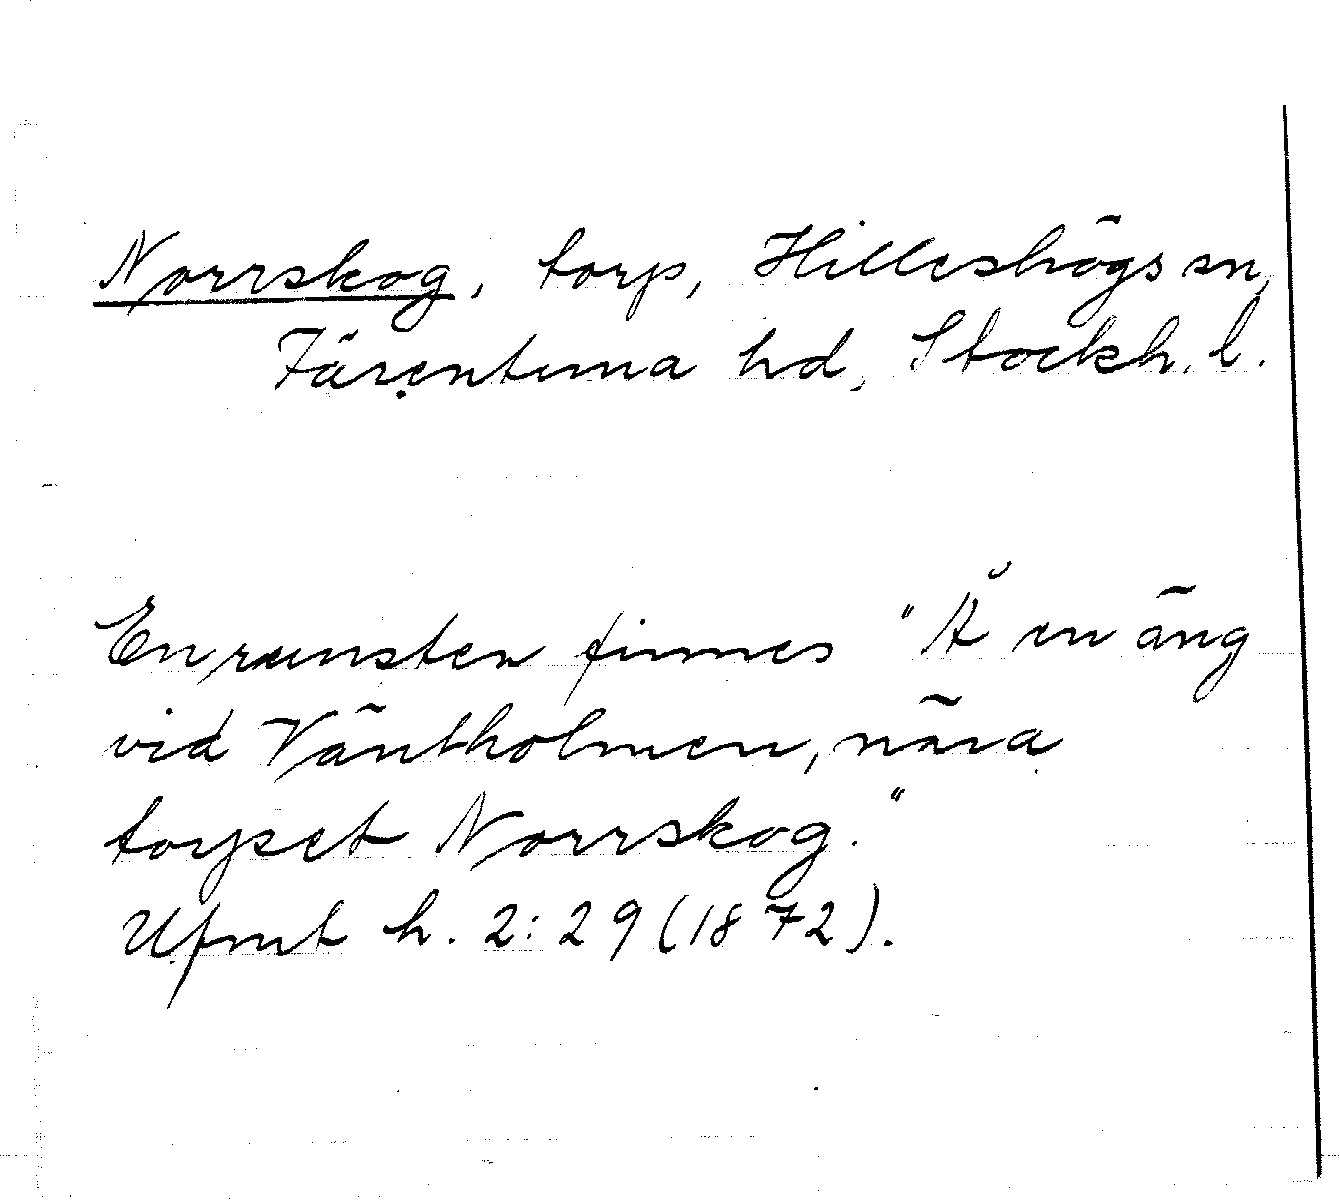 Norrskog, torp, Hilleshögs sn,
Färentuna hd, Stockh. l.
En runsten finnes "Å en äng
vid Väntholmen, nära
torpet Norrskog."
Ufmt h. 2:29 (1872).